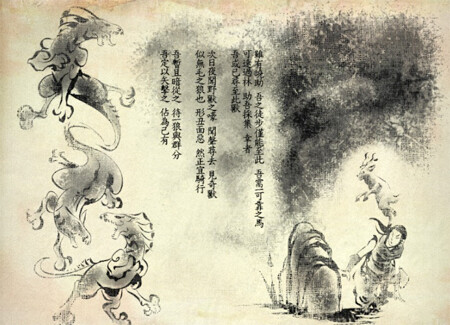 雖有 助 吾之徒步僅能至此 吾需一可靠之馬
可 林 助吾採集 幸者
吾 已尋至此獸
次日夜聞野獸之嚎 聞聲尋去 見奇獸
似無毛之狼也 形丑面惡 然正宜騎行
吾暫且暗從之 待一狼與群分
吾定以 擊之 佔為己有